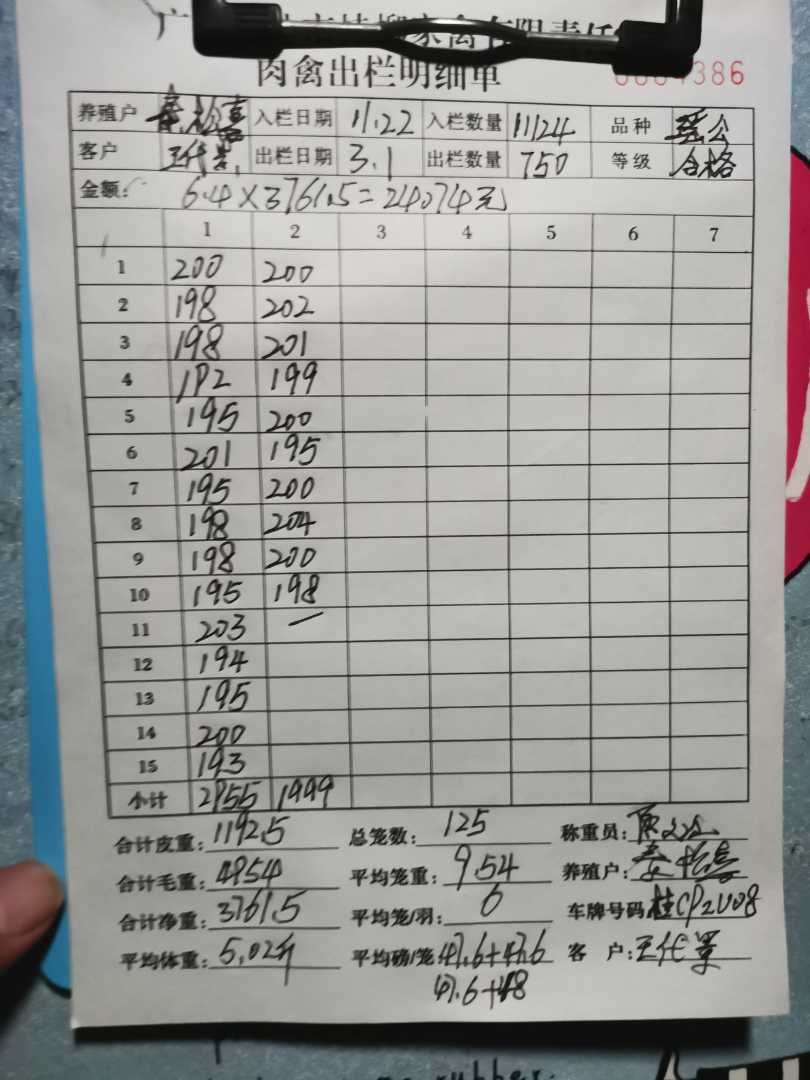 肉禽出栏明细单
386
养殖户 入栏日期 11.22 入栏数量 11124 品种 瑶公
客户 出栏日期 3.1 出栏数量 750 等级 合格
金额: 6.4×3761.5=24074元
1 2 3 4 5 6 7
1 200 200
2 198 202
3 198 201
4 192 199
5 195 200
6 201 195
7 195 200
8 198 204
9 198 200
10 195 198
11 203 —
12 194
13 195
14 200
15 193
小计 2955 1999
合计皮重: 1192.5 总笼数: 125 称重员:
合计毛重: 4954 平均笼重: 9.54 养殖户:
合计净重: 3761.5 平均笼/羽: 6 车牌号码 桂CP2U08
平均体重: 5.02斤 平均磅/笼 47.6+47.6 客 户:
47.6+48
rubber.